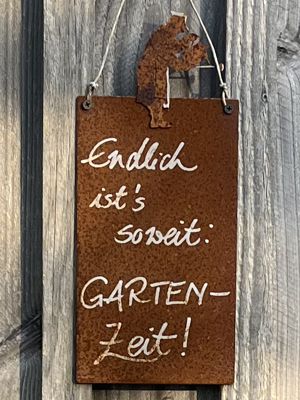 Endlich
ist's
soweit:
GARTEN-
Zeit!